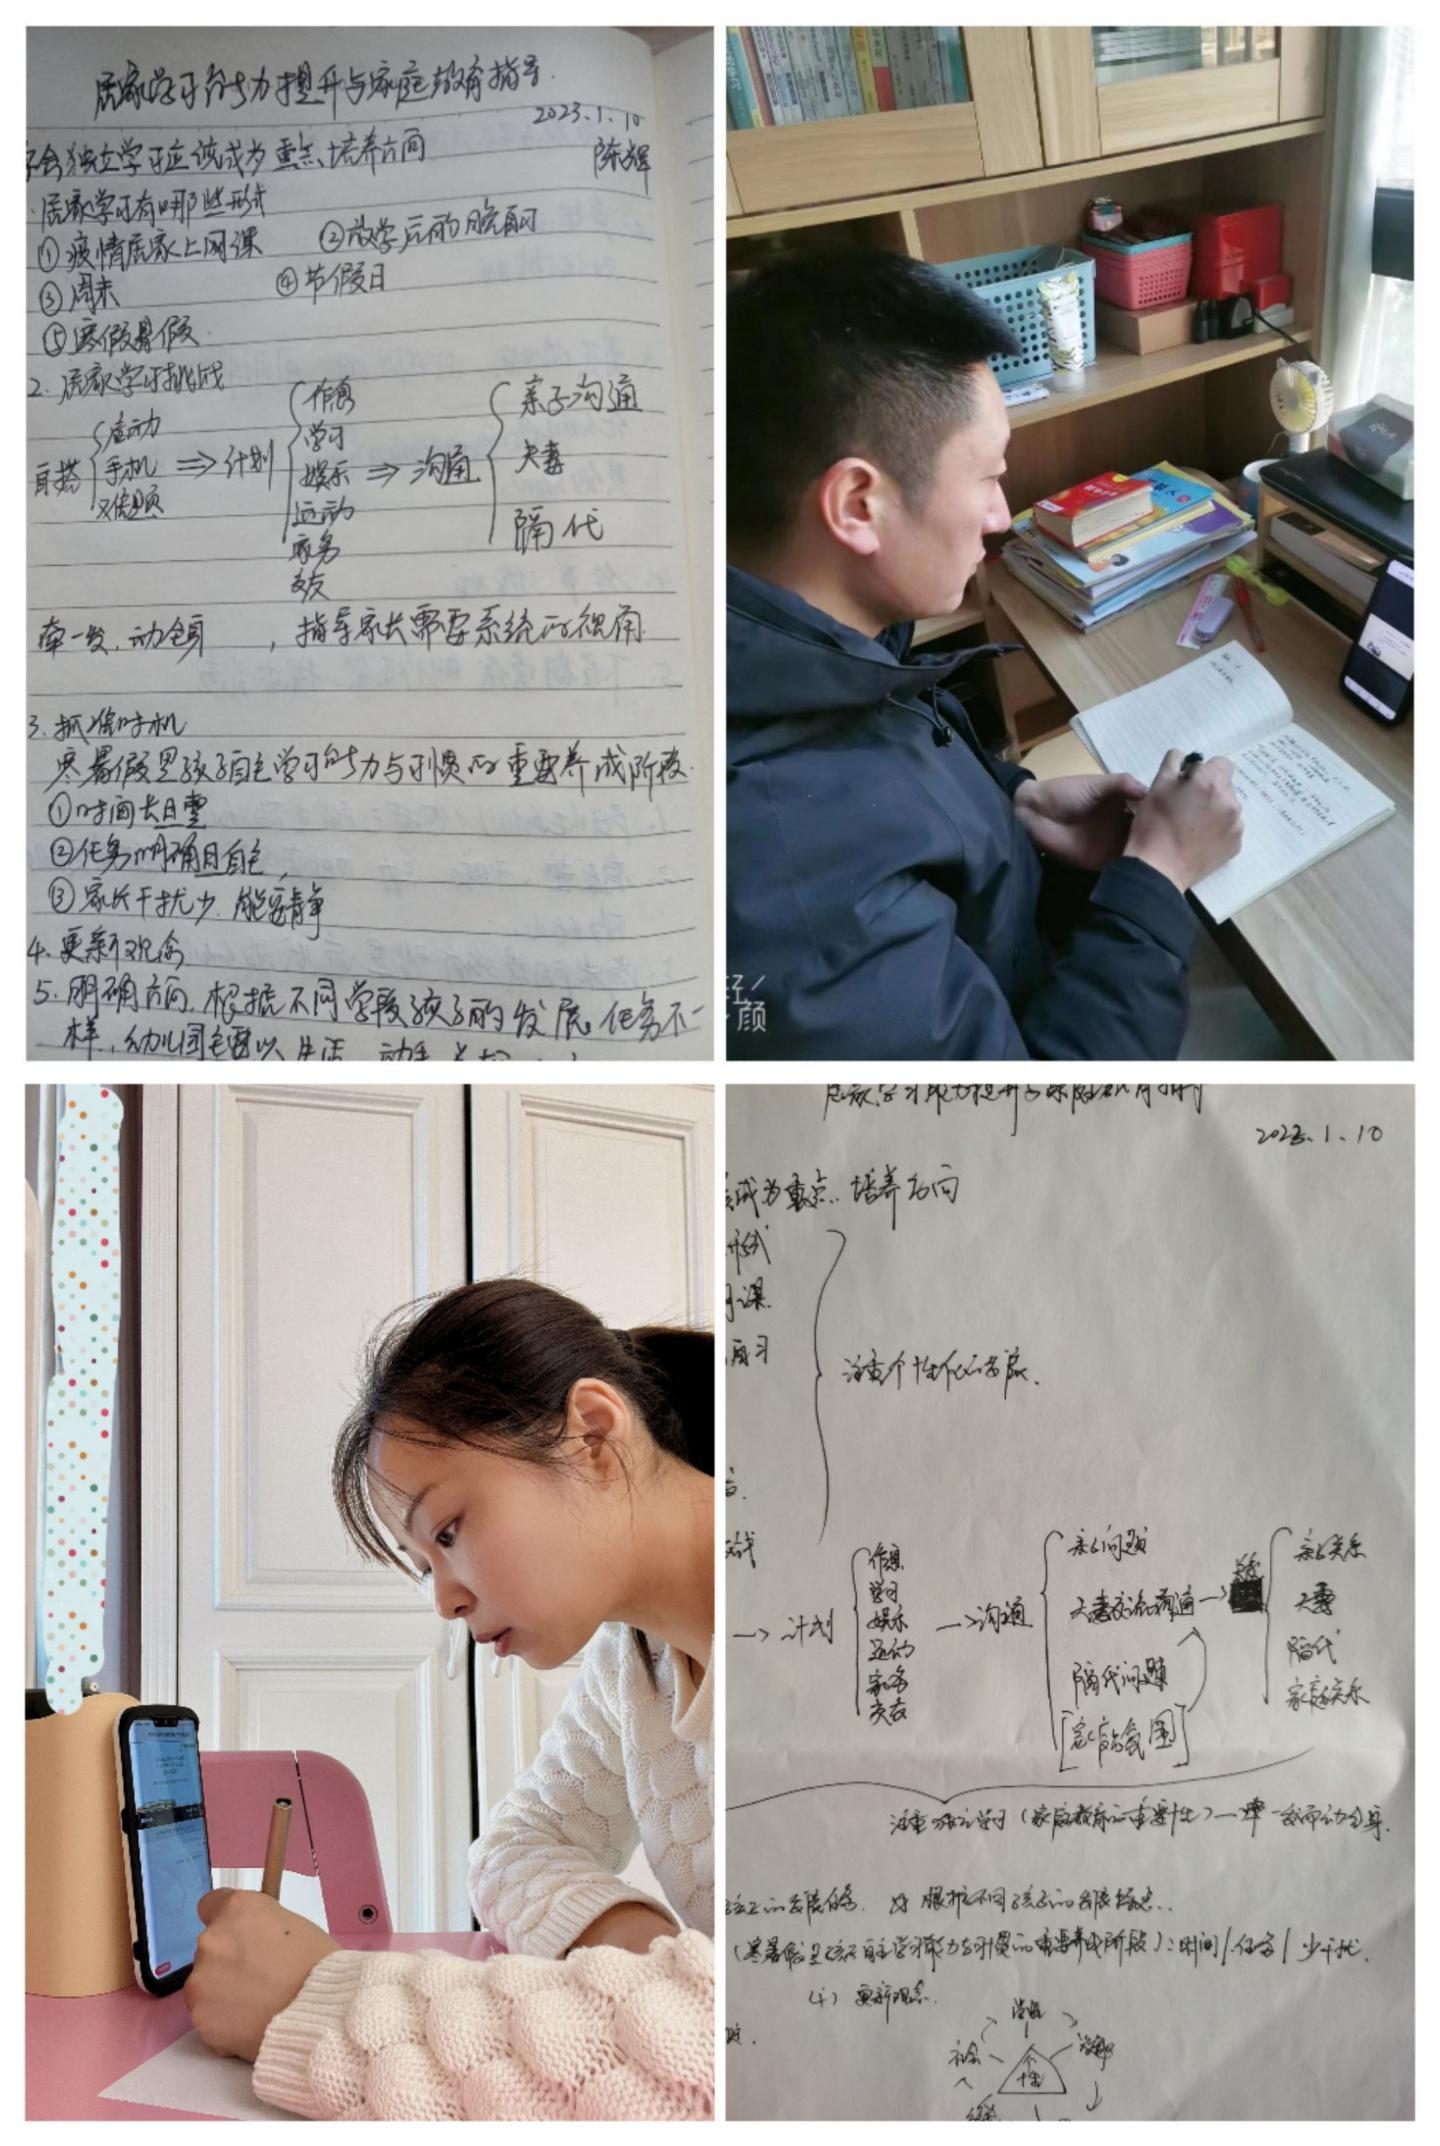 居家学习能力提升与家庭教育指导.
2023.1.10
学会独立学习应该成为重点培养方向
陈辉
居家学习有哪些形式
①疫情居家上网课 ②放学后的晚间
③周末 ④节假日
⑤寒假暑假.
2. 居家学习挑战
启动
手机
难题
⇒计划
作息
学习
娱乐
运动
家务
交友
⇒沟通
亲子沟通
夫妻
隔代
牵一发,动全身 , 指导家长需要系统的视角.
3. 抓准时机
寒暑假是孩子自主学习能力与习惯的重要养成阶段.
①时间长且整
②任务明确且自主,
③家长干扰少.能安静
4. 更新观念
5. 明确方向.根据不同学段孩子的发展任务不一
样,幼儿园主要以生活
轻
颜
居家学习能力提升与家庭教育指导
2023.1.10
成为重点..培养方向
形式
网课.
注重个性化的发展.
→计划
作息
学习
娱乐
运动
家务
交友
→沟通
亲子问题
夫妻交流沟通→
隔代问题
[家庭氛围]
关系
亲子关系
夫妻
隔代
家庭关系
注重独立学习(家庭教育的重要性)—牵一发而动全身.
根据不同孩子的发展特点..
(寒暑假是孩子自主学习能力与习惯的重要养成阶段):时间/任务/少干扰.
(4) 更新观念.
社会
个性